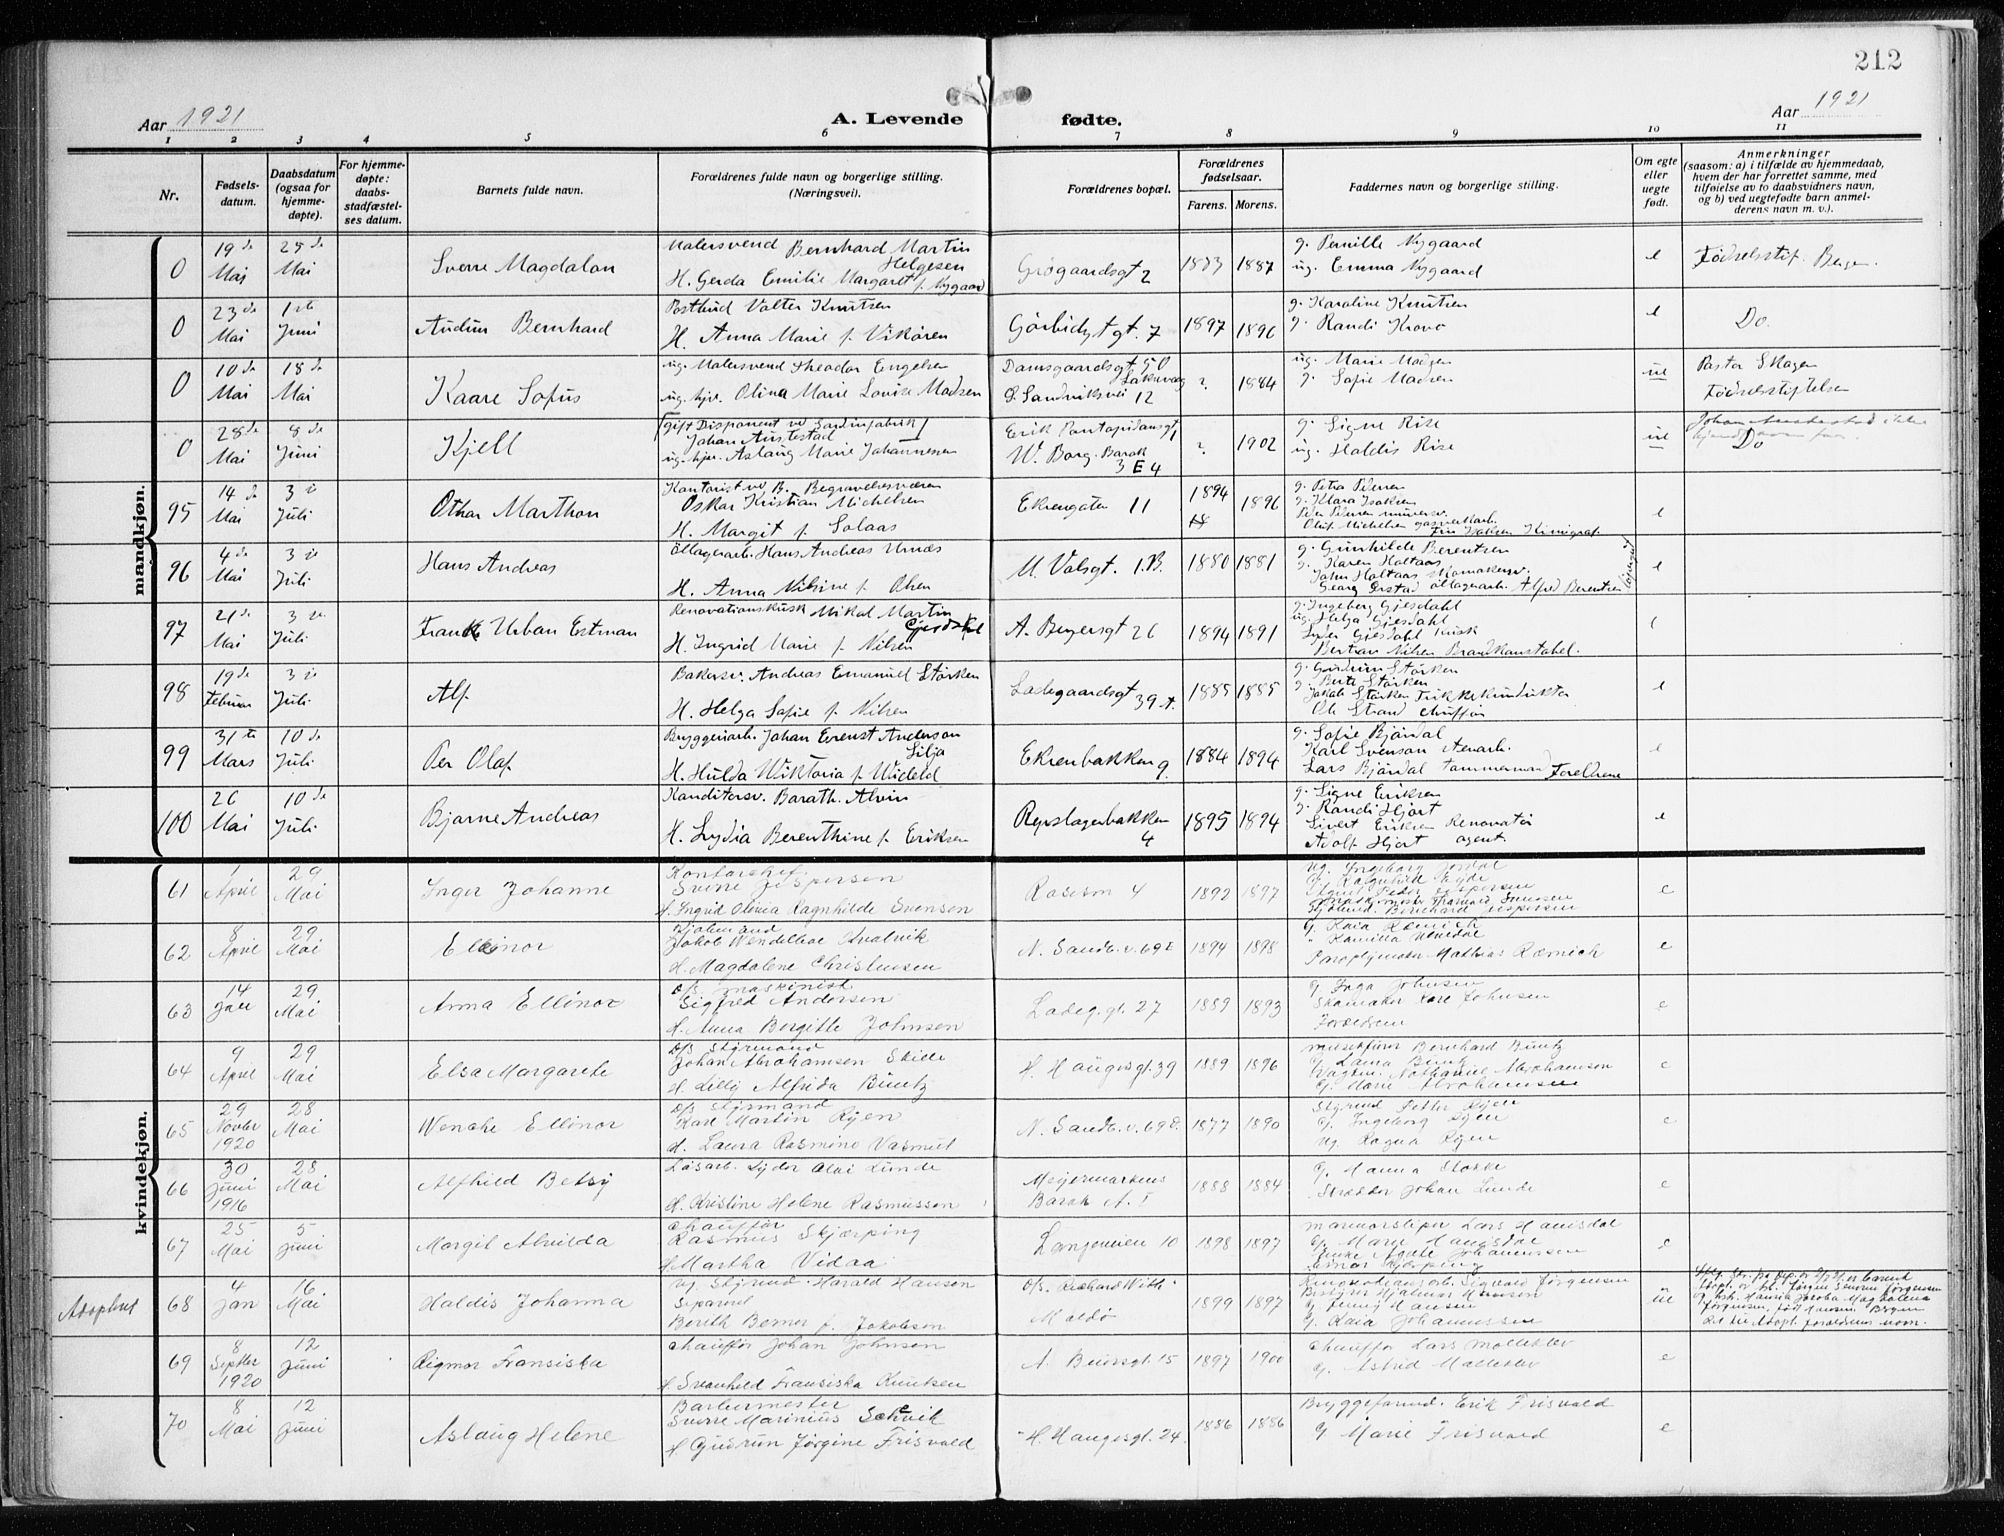 212
Aar 1921
A. Levende fødte.
Aar 1921
1 2 3 4 5 6 7 8 9 10 11
Nr.
Fødsels-
datum.
Daabsdatum
(ogsaa for
hjemme-
døpte).
For hjemme-
døpte:
daabs-
stadfæstel-
ses datum.
Barnets fulde navn.
Forældrenes fulde navn og borgerlige stilling.
(Næringsvei).
Forældrenes bopæl.
Forældrenes
fødselsaar.
Farens. Morens.
Faddernes navn og borgerlige stilling.
Om egte
eller
uegte
født.
Anmerkninger
(saasom: a) i tilfælde av hjemmedaab,
hvem der har forrettet samme, med
tilføielse av to daabsvidners navn,
og b) ved uegtefødte barn anmel-
derens navn m. v.).
mandkjøn.
0
19de Mai
25de Mai
Sverre Magdalon
Malersvend Bernhard Martin
Helgesen
H. Gerda Emilie Margaret f. Nygaard
Grøgaardsgt 2
1883 1887
g. Pernille Nygaard
ug. Emma Nygaard
e
Fødselsstif. Bergen.
0
23de Mai
1ste Juni
Audun Bernhard
Postbud Valter Knutsen
H. Anna Marie f. Vikøren
7
1897 1896
g. Karoline Knutsen
g. Randi
e
Do.
0
10de Mai
18de Mai
Kaare Sofus
ug. Malersvend Theodor Engelsen
ug. hjv. Olina Marie Louise Madsen
Damsgaardsgt 50
Laksevaag
Sandviksvei 12
? 1884
ug. Marie Madsen
g. Sofie Madsen
ue
Pastor Skagen
Fødselsstiftelsen
0
28de Mai
8de Juni
Kjell
(gift Disponent ve Sardinfabrik)
Johan
ug. hjv. Aslaug Marie Johannesen
Erik Pontopidansgt
W. Borg. Barak
3 E 4
? 1902
g. Signe Rise
ug. Haldis Rise
ue
Johan
Do
95
14de Mai
3die Juli
Othar Marthon
Kontorist ve B. Begravelsesvæsen
Oskar Kristian Michelsen
H. Margit f. Solaas
Ekrengaten 11
1894 1896
g. Petra Petersen
g. Klara Isaksen
Oluf Michelsen gasverkarb.
e
96
4de Mai
3die Juli
Hans Andreas
Ollagerarb. Hans Andreas Urnes
H. Anna Nilsine f. Olsen
M. Valsgt. 1.B.
1880 1881
g. Gunhilde Berentsen
g. Karen Holtaas
John Holtaas Skomakersv.
Georg Ørstad ollagerarb. Alfred Berentsen
e
97
21de Mai
3die Juli
Frank Urban Estman
Renovationskusk Mikal Martin
Gjesdahl
H. Ingrid Marie f. Nilsen
A. Beyersgt 26
1894 1891
g. Ingeborg Gjesdahl
ug. Helga Gjesdahl
Lyder Gjesdahl kusk
Bertian Nilsen Brandkonstabel.
e
98
19de Februar
3die Juli
Alf
Bakersv. Andreas Emanuel Størksen
H. Helga Sofie f. Nilsen
Ladegaardsgt
39 A.
1885 1885
g. Gudrun Størksen
g. Berte Størksen
Jakob Størksen Trikkekonduktør
Ole Strand chauffør
e
99
31te Mars
10de Juli
Per Olaf
Bryggeriarb. Johan Ernst Anderson
Silja
H. Hulda Wiktoria f. Widell
Ekrenbakken 9.
1884 1894
g. Sofie Bjørdal
Karl Svenson stenarb.
Lars Bjørdal tømmermand Foreldrene
e
100
26 Mai
10de Juli
Bjarne Andreas
Konditorsv. Barath. Alvin
H. Lydia Berenthine f. Eriksen
Repslagerbakken
4
1895 1894
g. Signe Eriksen
g. Randi Hjort
Sivert Eriksen Renovatør
Adolf Hjort agent.
e
kvindekjøn.
61
1 April
29 Mai
Inger Johanne
Kontorchef
Sverre Jespersen
H. Ingrid Olivia Ragnhilde Svensen
Rosesm 4
1892 1897
Ug. Ingeborg
G. Ragnhild
Bernhard Jespersen
e
62
8 April
29 Mai
Ellinor
Jakob Wendelboe Kvalvik
H. Magdalene Christensen
N. Sandv. v. 69 E
1894 1898
G. Kaia Ræmich
" Kamilla
Paraplymaker Mathias Ræmich
e
63
14 Jan
29 Mai
Anna Ellinor
D/S Maskinist
Sigfred Andersen
H. Anna Bergitte Johnsen
Ladeg. gt. 27
1889 1893
G. Inga Johnsen
Skomaker Kare Johnsen
Foreldrene
e
64
9 April
29 Mai
Elsa Margarete
D/S Styrmand
Johan Abrahamsen Skide
H. Lilli Alfrida Buntz
H. Haugesgt. 39
1889 1896
Musekfører Bernhard Buntz
G. Laura Buntz
Vagtm. Nathaniel Abrahamsen
G. Marie Abrahamsen
e
65
29 Novber 1920
28 Mai
Wenche Ellinor
D/S Styrmand
Kare Martin Ryen
H. Laura Rasmine Vasmut
N. Sandv. v. 69 E.
1877 1890
Styrmd Petter Ryen
G. Ingeborg Ryen
Ug. Ragna Ryen
e
66
30 Juni 1916
28 Mai
Alfhild Betsy
Løsarb. Lyder Olai Lunde
H. Kristine Helene Rasmussen
Meyermarkens
Barak A. I
1888 1884
G. Hanna Stokke
Skredder Johan Lunde
e
67
25 Mai
5 Juni
Margit Alvilda
Chauffør
Rasmus Skjærping
H. Martha Vidaa
Langeveien 10
1898 1897
Marmorsliper Lars Hausdal
G. Marie Hausdal
Enke Agate Johannessen
Einar Skjærping
e
Adoptert
68
4 Jan
16 Mai
Haldis Johanna
Ug Styrmd. Harald Hansen
Separert
Bereth Berner f. Jakobsen
D/S. Richard With
Maldø
1899 1897
Sigvald Jørgensen
Bestyrer Hjalmar Hansen
G. Jenny Hansen
G. Kaia Johannessen
ue
69
8 Septber 1920
12 Juni
Rigmor Fransiska
Chauffør Johan Johnsen
H. Svanhild Fransiska Knutsen
A. Beiersgt. 15
1897 1900
Chauffør Lars Mølleklev
G. Astrid Mølleklev
e
70
8 Mai
12 Juni
Aslaug Helene
Barbermester
Sverre Marinius Schvik
H. Gudrun Jørgine Frisvold
H. Haugesgt. 24
1886 1886
Bryggeformd. Erik Frisvold
G Marie Frisvold
e